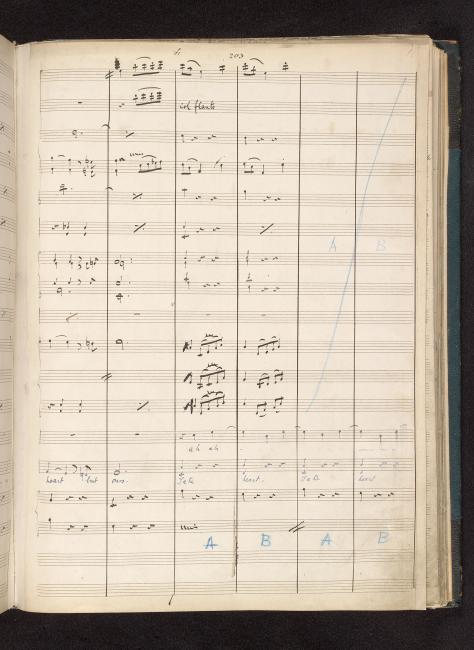 203
col flauto
A B
ah ah
heart but one. Take heart. Take heart
A B A B